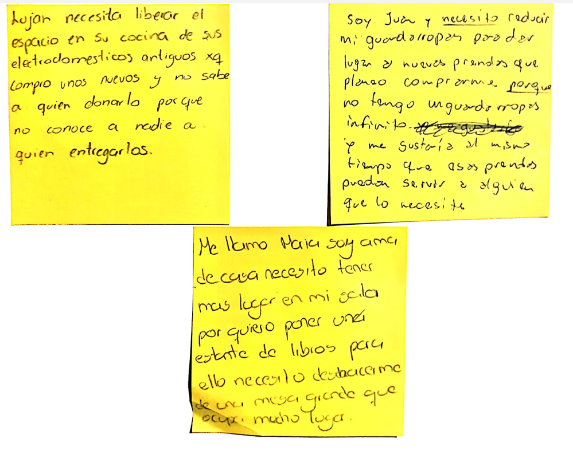 Lujan necesita liberar el
espacio en su cocina de sus
electrodomesticos antiguos xq
compro unos nuevos y no sabe
a quien donarlo porque
no conoce a nadie a
quien entregarlos.
Soy Juan y necesito reducir
mi guardarropas para dar
lugar a nuevas prendas que
planeo comprarme porque
no tengo un guardarropas
infinito.
y me gustaría al mismo
tiempo que esas prendas
puedan servir a alguien
que lo necesite
Me llamo Maria soy ama
de casa necesito tener
mas lugar en mi sala
por quiero poner una
estante de libros para
ello necesito deshacerme
de una mesa grande que
ocupa mucho lugar.